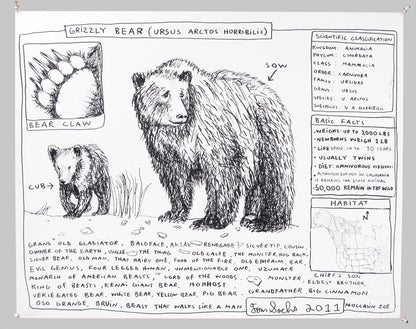 GRIZZLY BEAR (URSUS ARCTOS HORRIBILIS)
BEAR CLAW
CUB
SOW
SCIENTIFIC CLASSIFICATION
KINGDOM: ANIMALIA
PHYLUM: CHORDATA
CLASS: MAMMALIA
ORDER: CARNIVORA
FAMILY: URSIDAE
GENUS: URSUS
SPECIES: U. ARCTOS
SUBSPECIES: U. A. HORRIBILIS
BASIC FACTS
• WEIGHS UP TO 1000 LBS
• NEWBORNS WEIGH 1 LB
• LIFESPAN: UP TO 30 YEARS
• USUALLY TWINS
• DIET: OMNIVOROUS
• ALTHOUGH EXTINCT IN CALIFORNIA IT REMAINS THE STATE ANIMAL
• 50,000 REMAIN IN THE WILD
HABITAT
N
GRAND OLD GLADIATOR, BALDFACE, RENEGADE SILVERTIP, COUSIN
OWNER OF THE EARTH, UNCLE, THE THING OLD CALIFE, THE MONSTER, HOG BACK,
SILVER BEAR, OLD MAN, THAT HAIRY ONE, FOOD OF THE FIRE, OLD EPHRAIM, BAR,
EVIL GENIUS, FOUR LEGGED HUMAN, UNMENTIONABLE ONE, UZUMATE
MONARCH OF AMERICAN BEASTS, LORD OF THE WOODS, MONSTER CHIEF'S SON
KING OF BEASTS, KENAI GIANT BEAR, HOHHOST GRANDFATHER ELDEST BROTHER,
VERIEGATED BEAR, WHITE BEAR, YELLOW BEAR, PIG BEAR BIG CINNAMON
OSO GRANDE, BRUIN, BEAST THAT WALKS LIKE A MAN 2011 MOCCASIN JOE